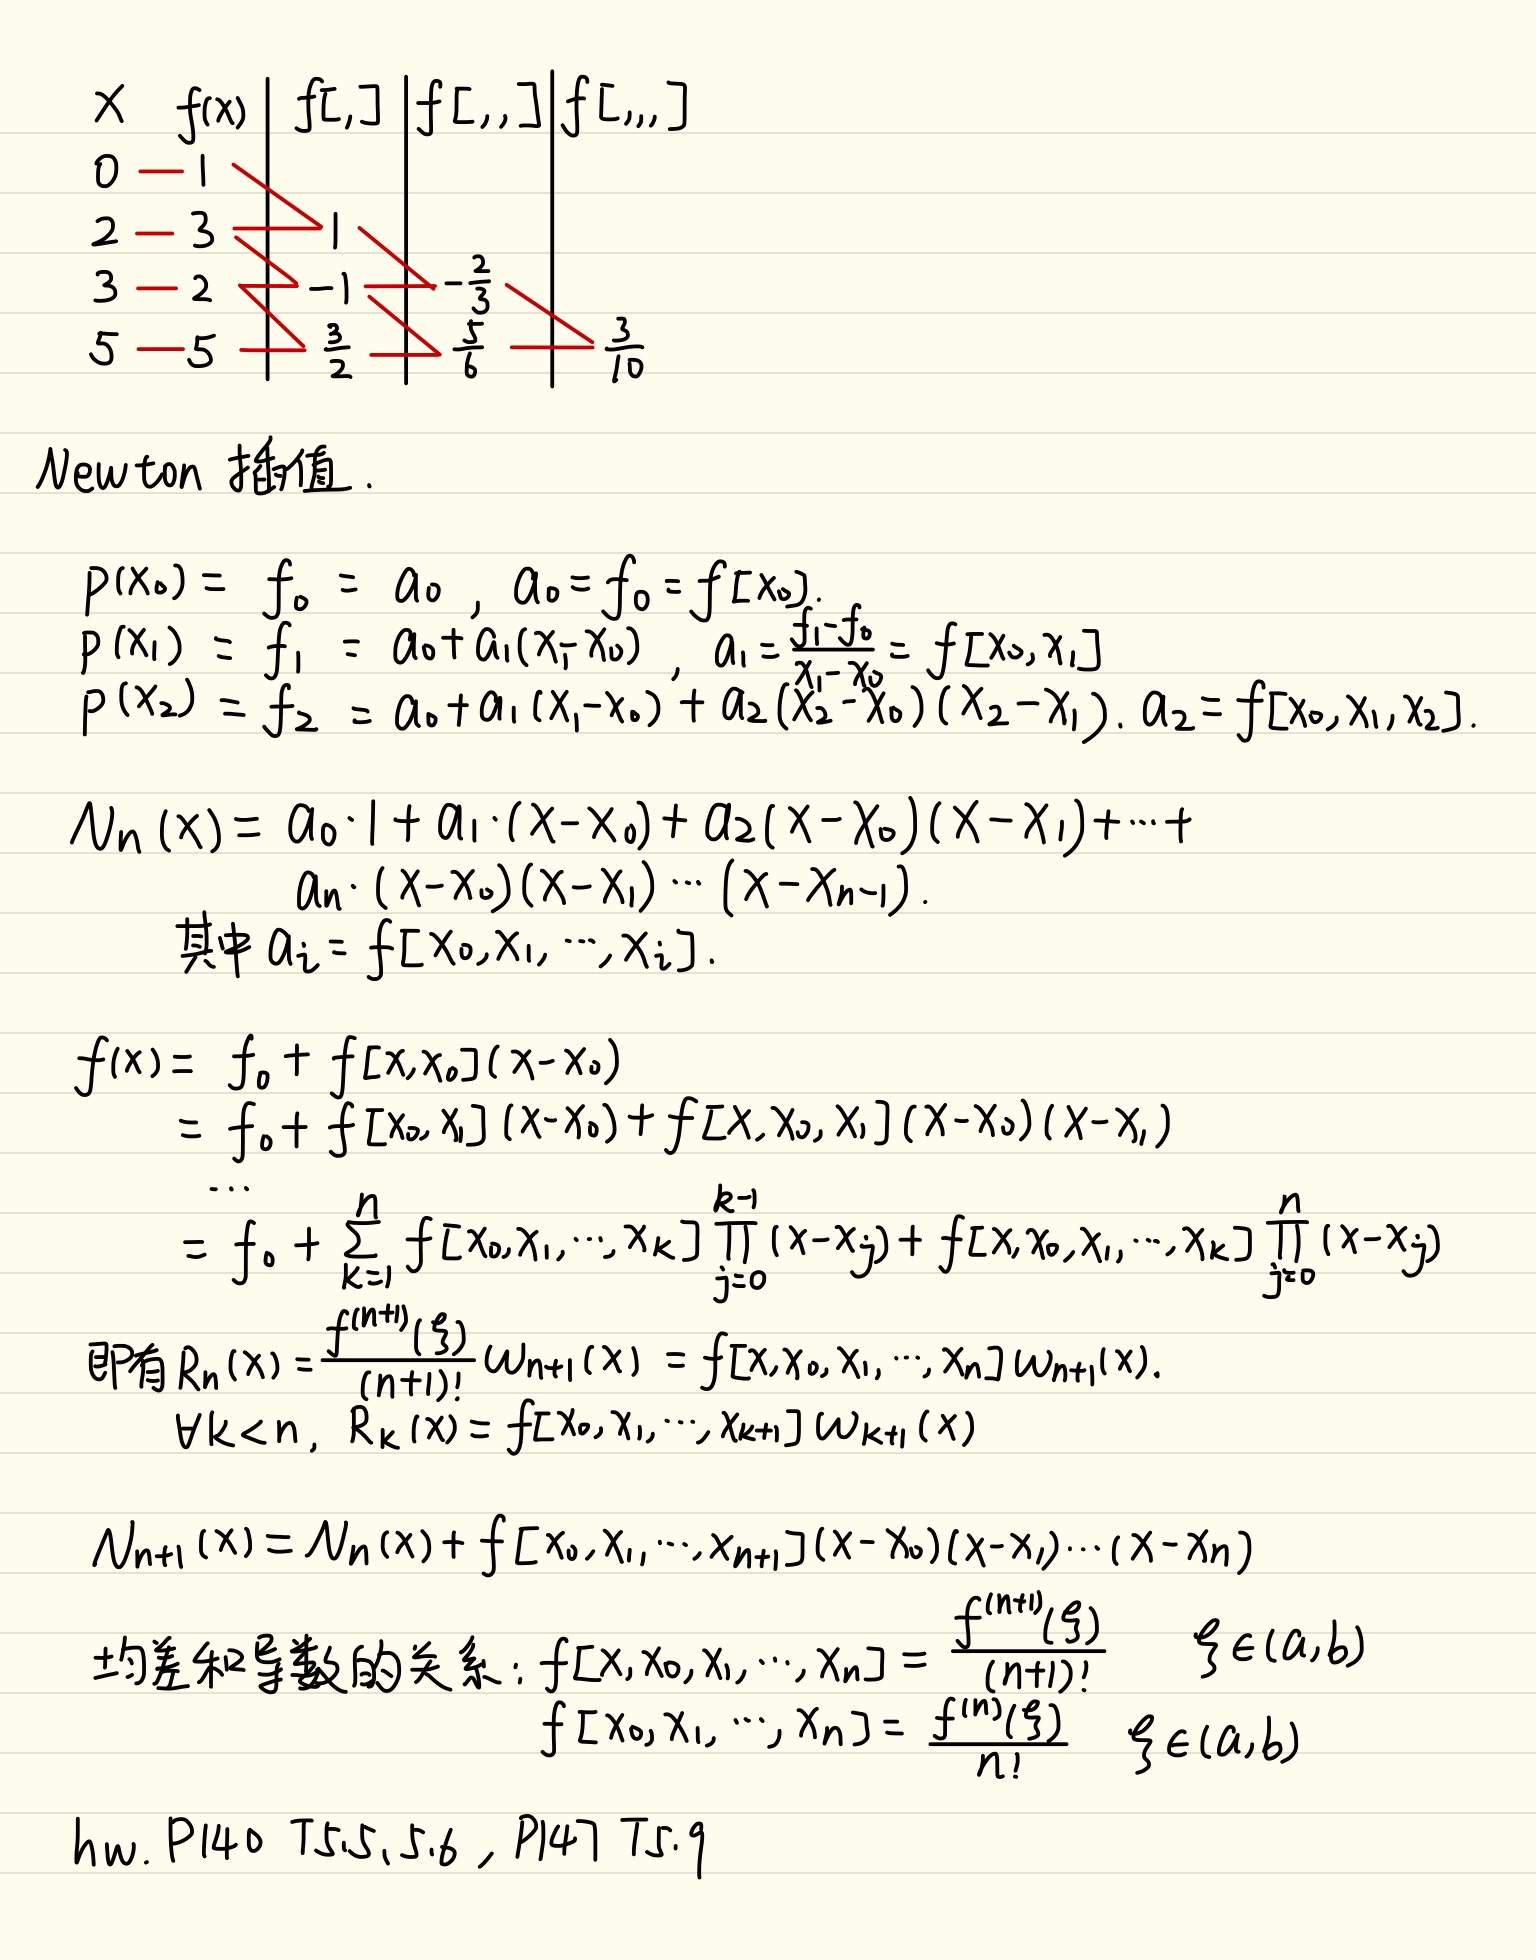 x f(x) f[,] f[,,] f[,,,]
0 — 1
2 — 3 1
3 — 2 -1 -2/3
5 — 5 3/2 5/6 3/10
Newton 插值.
p(x₀) = f₀ = a₀, a₀ = f₀ = f[x₀].
p(x₁) = f₁ = a₀ + a₁(x₁-x₀), a₁ = (f₁-f₀)/(x₁-x₀) = f[x₀, x₁]
p(x₂) = f₂ = a₀ + a₁(x₁-x₀) + a₂(x₂-x₀)(x₂-x₁). a₂ = f[x₀, x₁, x₂].
Nₙ(x) = a₀·1 + a₁·(x-x₀) + a₂(x-x₀)(x-x₁) + ⋯ +
aₙ·(x-x₀)(x-x₁)⋯(x-xₙ₋₁).
其中 aᵢ = f[x₀, x₁, ⋯, xᵢ].
f(x) = f₀ + f[x, x₀](x-x₀)
= f₀ + f[x₀, x₁](x-x₀) + f[x, x₀, x₁](x-x₀)(x-x₁)
⋯
= f₀ + ∑_{k=1}^{n} f[x₀, x₁, ⋯, x_k] ∏_{j=0}^{k-1} (x-x_j) + f[x, x₀, x₁, ⋯, x_k] ∏_{j=0}^{n} (x-x_j)
即有 Rₙ(x) = f⁽ⁿ⁺¹⁾(ξ)/(n+1)! ωₙ₊₁(x) = f[x, x₀, x₁, ⋯, xₙ] ωₙ₊₁(x).
∀k<n, R_k(x) = f[x₀, x₁, ⋯, x_{k+1}] ω_{k+1}(x)
Nₙ₊₁(x) = Nₙ(x) + f[x₀, x₁, ⋯, xₙ₊₁](x-x₀)(x-x₁)⋯(x-xₙ)
均差和导数的关系: f[x, x₀, x₁, ⋯, xₙ] = f⁽ⁿ⁺¹⁾(ξ)/(n+1)! ξ∈(a,b)
f[x₀, x₁, ⋯, xₙ] = f⁽ⁿ⁾(ξ)/n! ξ∈(a,b)
hw. P140 T5.5, 5.6, P147 T5.9